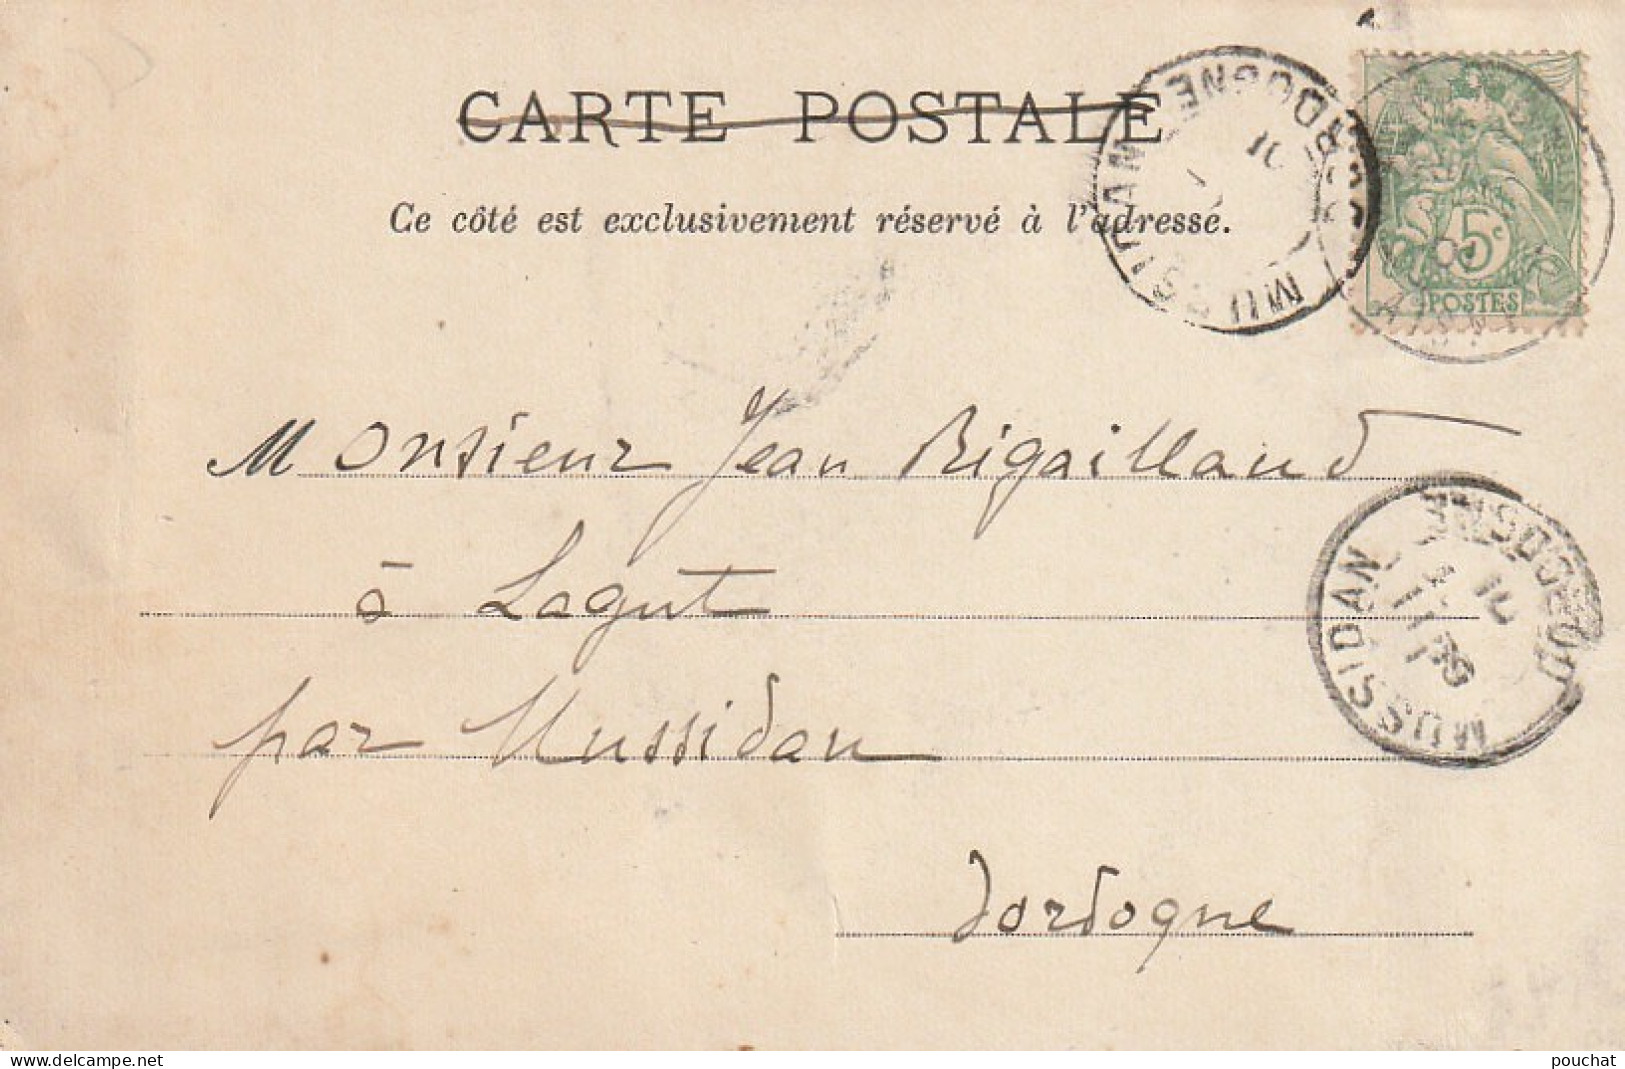 CARTE POSTALE
Ce côté est exclusivement réservé à l'adresse.
MUSSIDAN
DORDOGNE
5c
POSTES
Monsieur Jean Rigaillaud
à Lagut
par Mussidan
Dordogne
MUSSIDAN
DORDOGNE
www.delcampe.net
pouchat